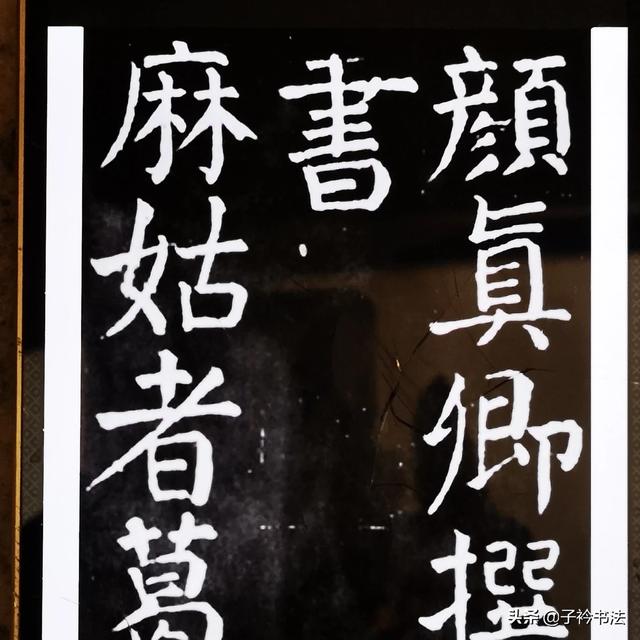 顔真卿撰
書
麻姑者葛
头条@子衿书法